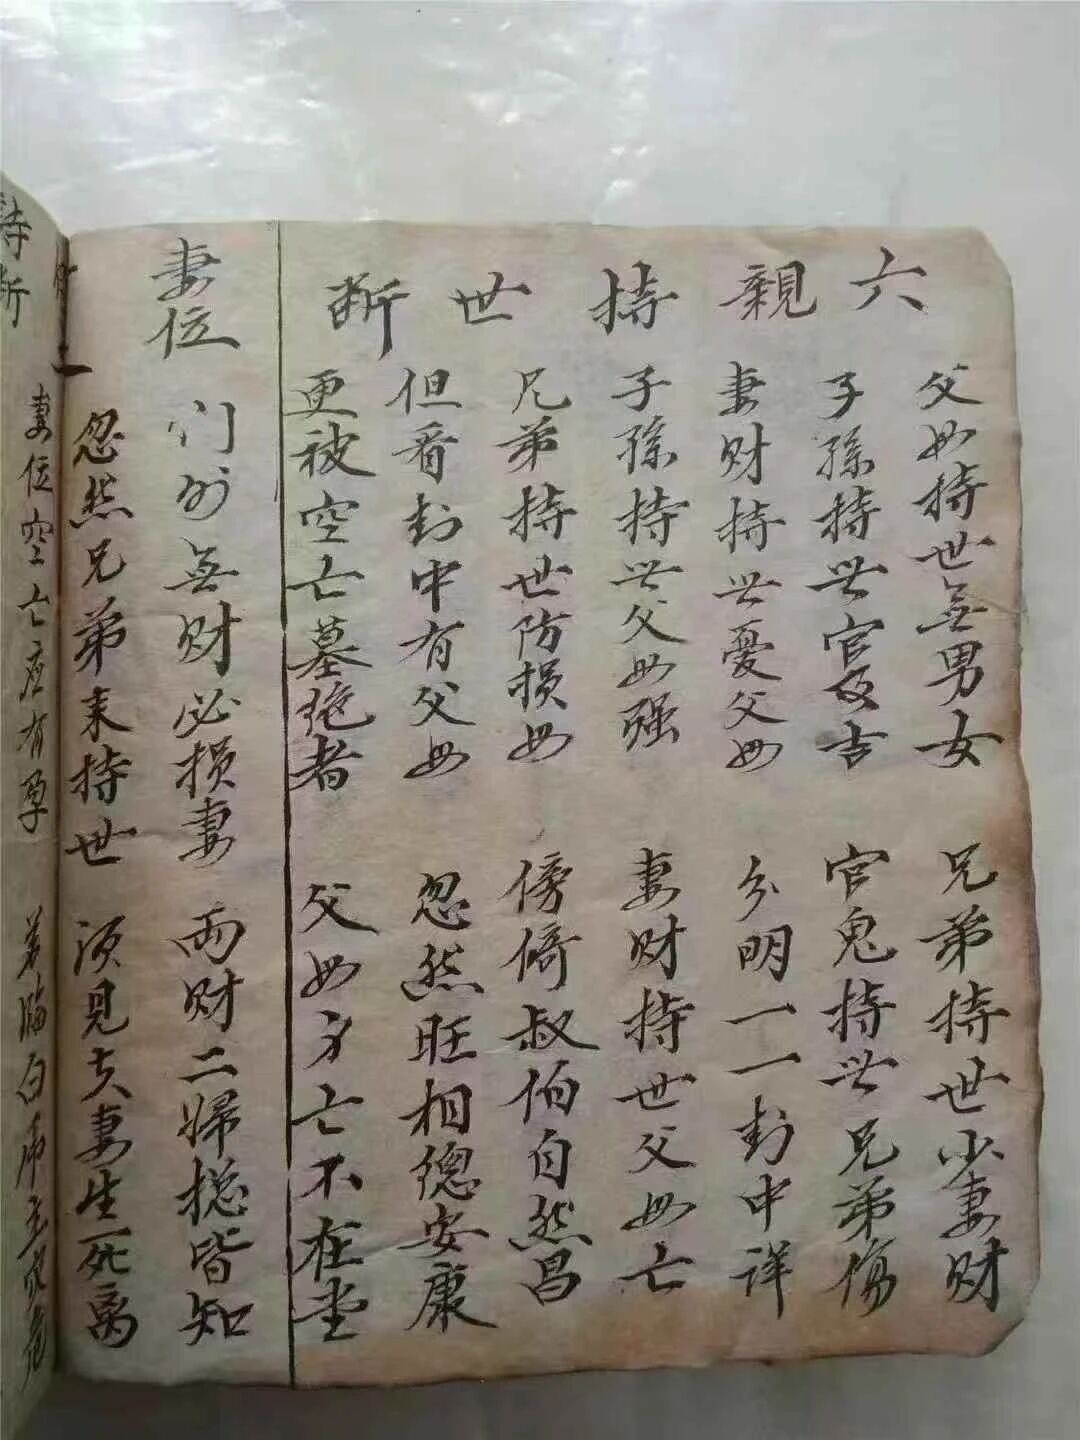 六親持世断
父母持世無男女 兄弟持世少妻财
子孫持世官 吉 官鬼持世兄弟傷
妻财持世憂父母 分明一一卦中详
子孫持世父母强 妻财持世父母亡
兄弟持世防损母 傍倚叔伯自然昌
但看卦中有父母 忽然旺相總安康
更被空亡墓绝者 父母身亡不在堂
妻位
门外無财必损妻 両财二婦總皆知
忽然兄弟来持世 须見夫妻生死离
妻位空亡应有孕 弟临白虎主